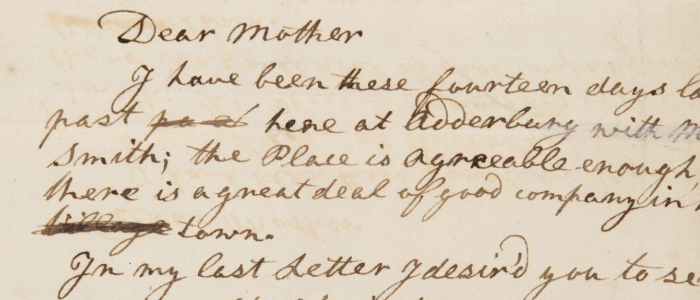 Dear Mother
I have been these fourteen days la
past here at Adderbury with M
Smith; the Place is agreeable enough
there is a great deal of good company in
village town.
In my last Letter I desir'd you to se